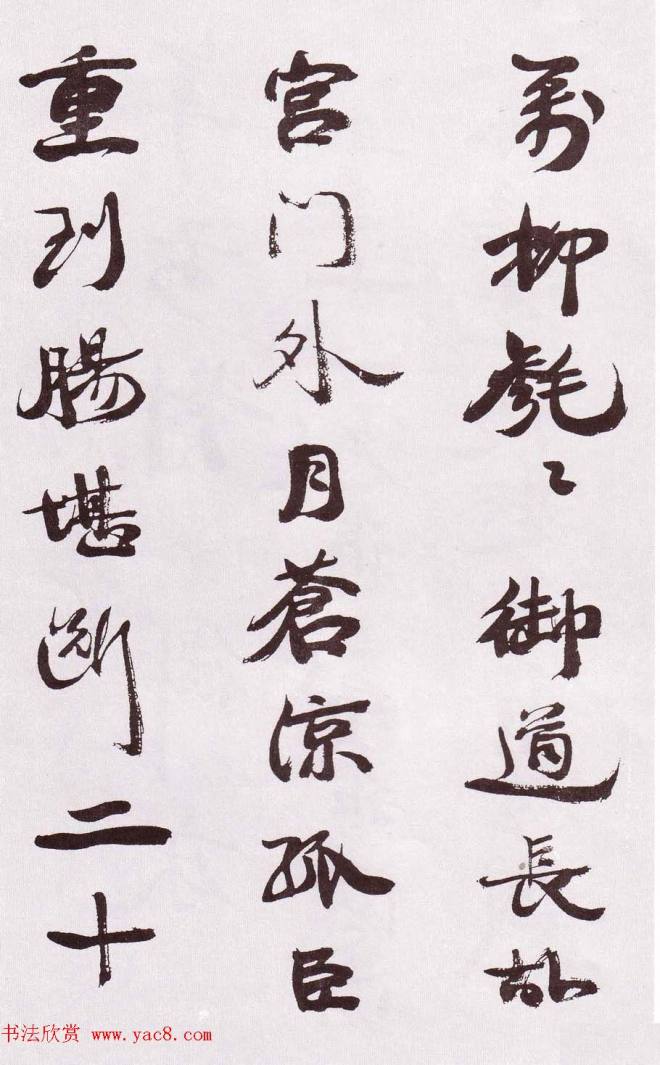 万柳毿々御道長故
宫门外月蒼凉孤臣
重到腸堪断二十
书法欣赏 www.yac8.com